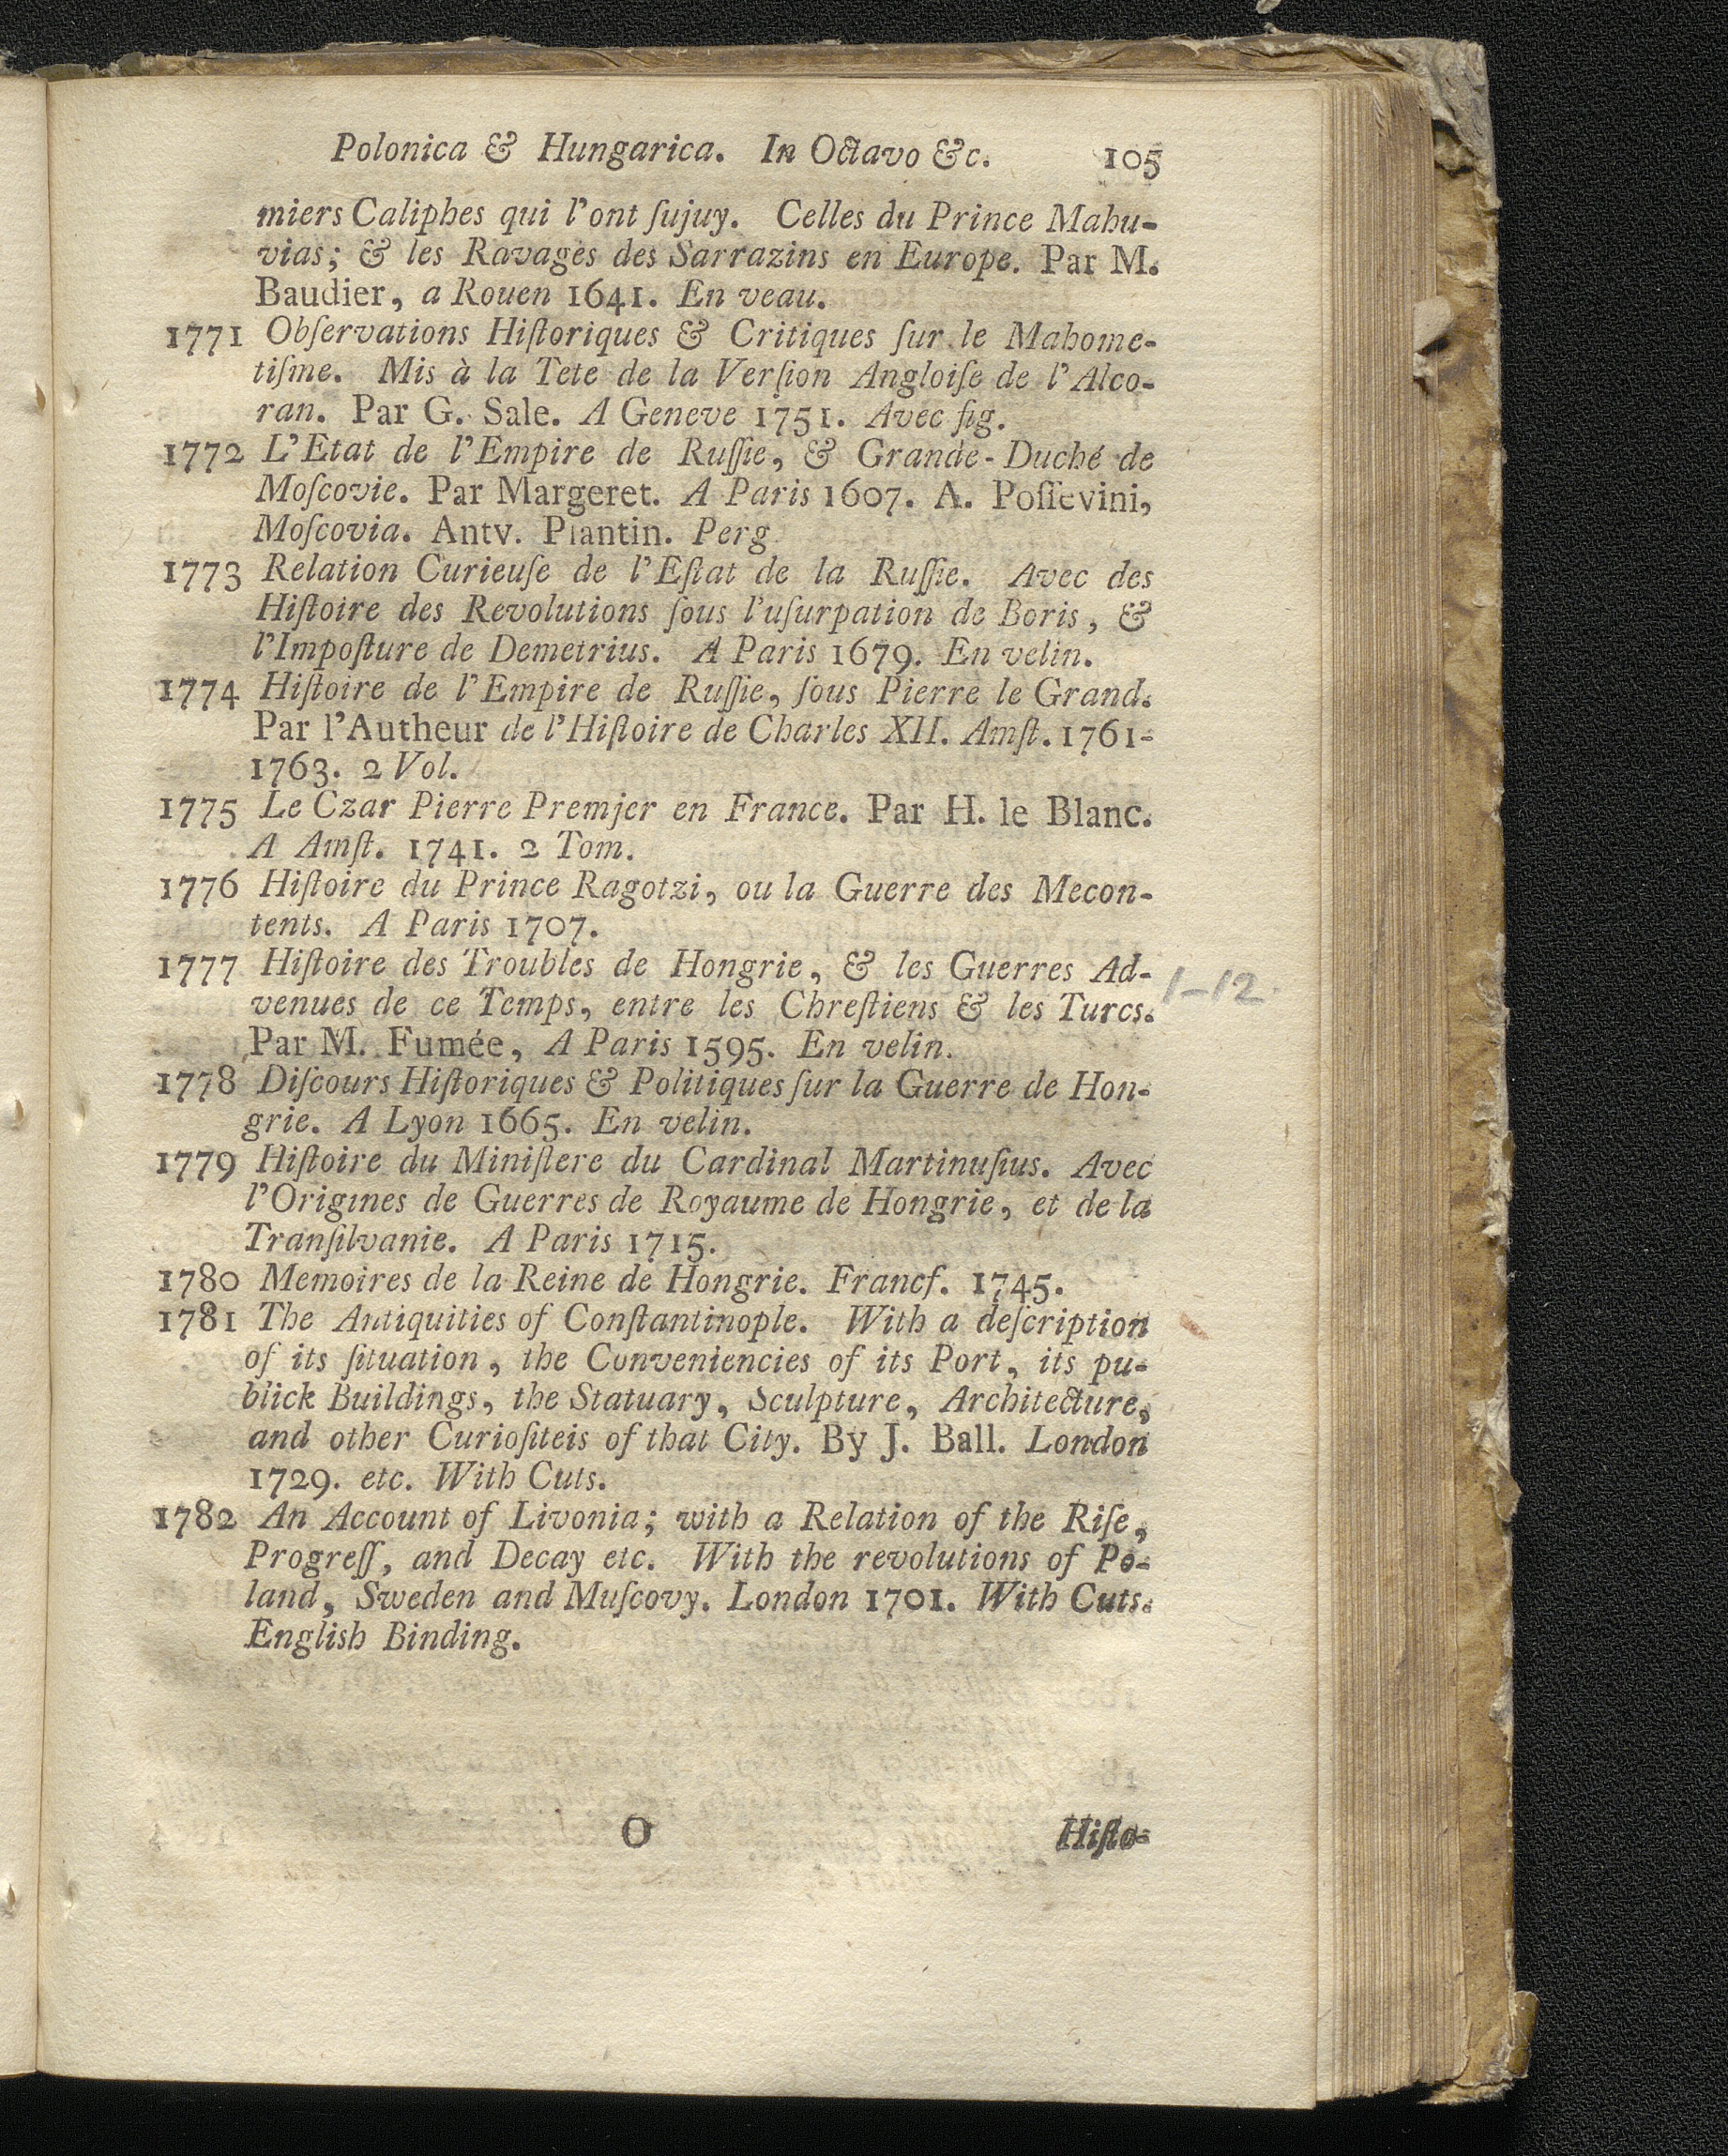 Polonica & Hungarica. In Octavo &c. 105
miers Caliphes qui l'ont ſujuy. Celles du Prince Mahu-
vias; & les Ravages des Sarrazins en Europe. Par M.
Baudier, a Rouen 1641. En veau.
1771 Obſervations Hiſtoriques & Critiques ſur le Mahome-
tiſme. Mis à la Tete de la Verſion Angloiſe de l'Alco-
ran. Par G. Sale. A Geneve 1751. Avec fig.
1772 L'Etat de l'Empire de Ruſſie, & Grande-Duché de
Moſcovie. Par Margeret. A Paris 1607. A. Poſſevini,
Moſcovia. Antv. Plantin. Perg.
1773 Relation Curieuſe de l'Eſtat de la Ruſſie. Avec des
Hiſtoire des Revolutions ſous l'uſurpation de Boris, &
l'Impoſture de Demetrius. A Paris 1679. En velin.
1774 Hiſtoire de l'Empire de Ruſſie, ſous Pierre le Grand.
Par l'Autheur de l'Hiſtoire de Charles XII. Amſt. 1761-
1763. 2 Vol.
1775 Le Czar Pierre Premjer en France. Par H. le Blanc.
A Amſt. 1741. 2 Tom.
1776 Hiſtoire du Prince Ragotzi, ou la Guerre des Mecon-
tents. A Paris 1707.
1777 Hiſtoire des Troubles de Hongrie, & les Guerres Ad-
1-12
venues de ce Temps, entre les Chreſtiens & les Turcs.
Par M. Fumée, A Paris 1595. En velin.
1778 Diſcours Hiſtoriques & Politiques ſur la Guerre de Hon-
grie. A Lyon 1665. En velin.
1779 Hiſtoire du Miniſtere du Cardinal Martinuſius. Avec
l'Origines de Guerres de Royaume de Hongrie, et de la
Tranſilvanie. A Paris 1715.
1780 Memoires de la Reine de Hongrie. Francf. 1745.
1781 The Antiquities of Conſtantinople. With a deſcription
of its ſituation, the Conveniencies of its Port, its pu-
blick Buildings, the Statuary, Sculpture, Architecture,
and other Curioſiteis of that City. By J. Ball. London
1729. etc. With Cuts.
1782 An Account of Livonia; with a Relation of the Riſe,
Progreſſ, and Decay etc. With the revolutions of Po-
land, Sweden and Muſcovy. London 1701. With Cuts.
English Binding.
O Hiſto-